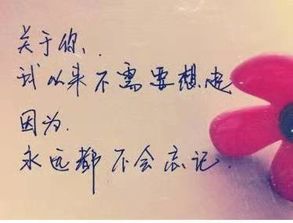 关于你，
我从来不需要想起
因为，
永远都不会忘记。